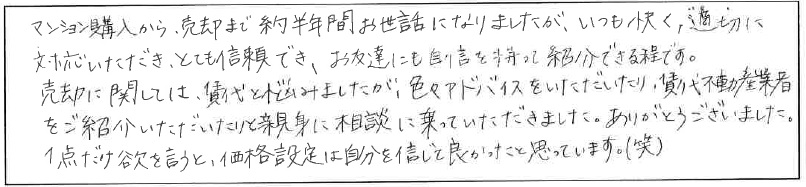 マンション購入から、売却まで約半年間お世話になりましたが、いつも快く、適切に
対応いただき、とても信頼でき、お友達にも自信を持って紹介できる程です。
売却に関しては、賃貸と悩みましたが、色々アドバイスをいただいたり、賃貸不動産業者
をご紹介いただいたりと親身に相談に乗っていただきました。ありがとうございました。
1点だけ欲を言うと、価格設定は自分を信じて良かったと思っています。(笑)